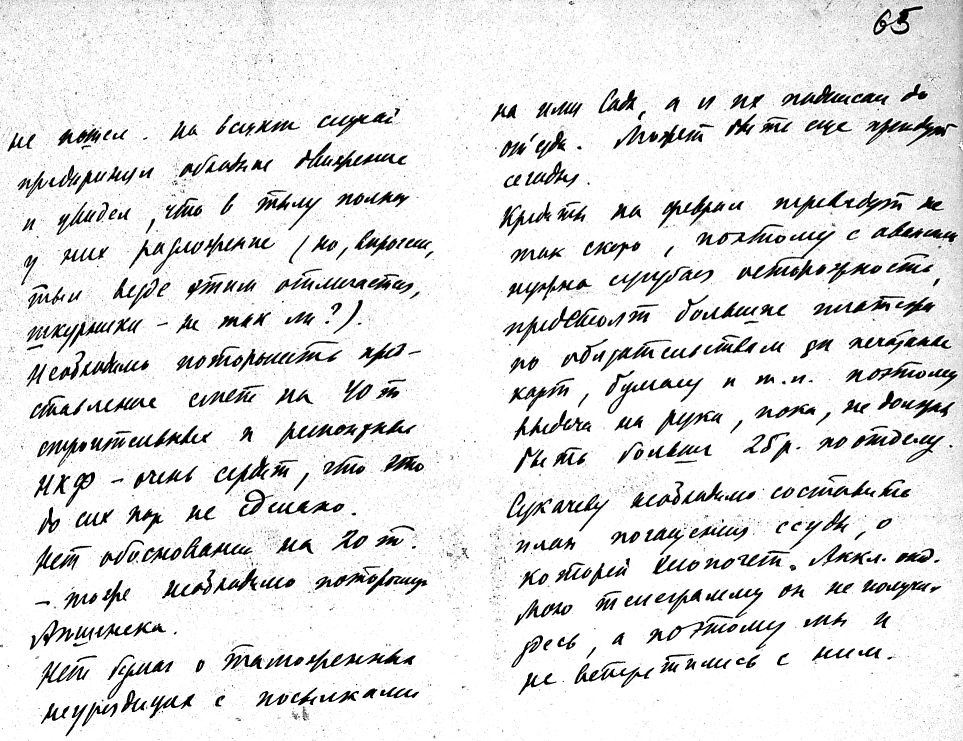 65
не пошел. на всякий случай
предпринял обходное движение
и увидел, что в тылу полное
у них разложение (но, впрочем,
тыл везде этим отличается,
шкурники – не так ли?).
Необходимо поторопить пред-
ставление смет на 40 т
строительные и ремонтные
НКФ – очень сердит, что это
до сих пор не сделано.
Нет обоснования на 20 т.
– тоже необходимо поторопить
Апшенека.
Нет бумаг о таможенных
неурядицах с посылками
на имя Сада, а я их подписал до
отъезда. Может быть еще придут
сегодня.
Кредиты на февраль переведут не
так скоро, поэтому с авансами
нужна сугубая осторожность,
предстоят большие платежи
по обязательствам за печатание
карт, бумагу и т.п. поэтому
выдача на руки, пока, не должна
быть больше 25 р. по отделу.
Сукачеву необходимо составить
план погашения ссуды, о
которой хлопочет.
Мою телеграмму он не получил
здесь, а поэтому мы и
не встретились с ним.